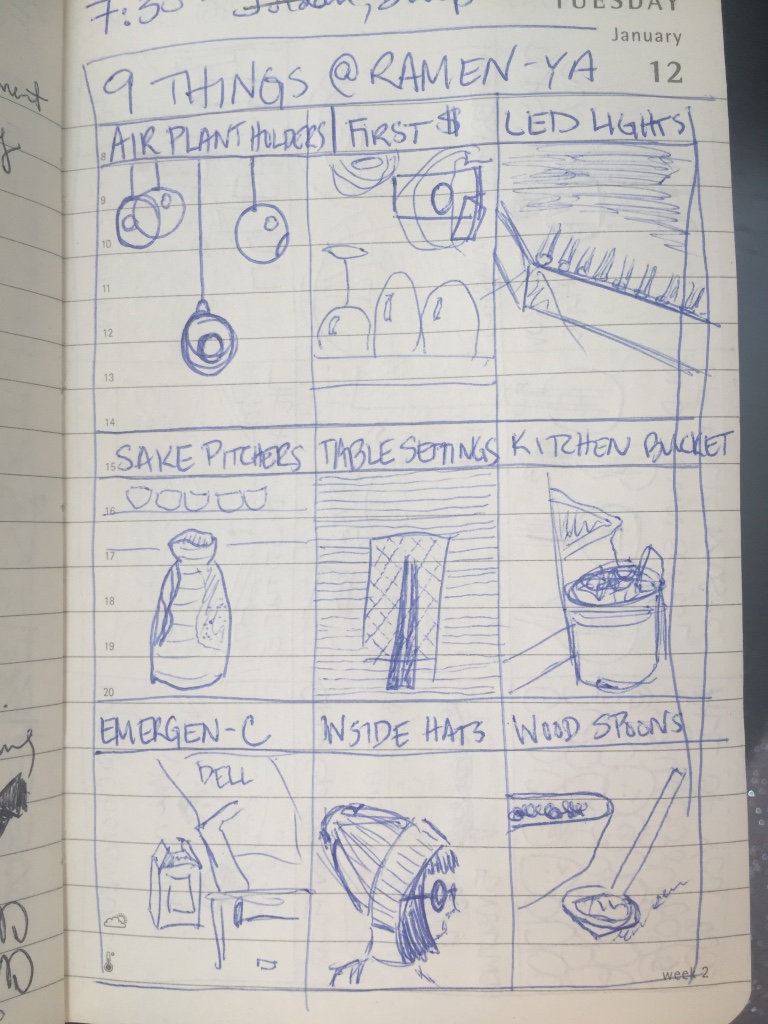 7:30
TUESDAY
January
12
9 THINGS @RAMEN-YA
AIR PLANT HOLDERS FIRST $ LED LIGHTS
8
9
10
11
12
13
14
SAKE PITCHERS TABLE SETTINGS KITCHEN BUCKET
15
16
17
18
19
20
EMERGEN-C INSIDE HATS WOOD SPOONS
DELL
week 2